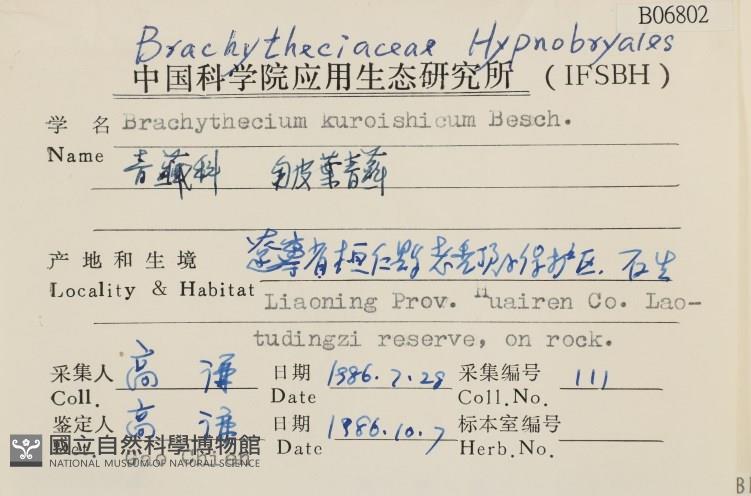 B06802
Brachytheciaceae Hypnobryales
中国科学院应用生态研究所 (IFSBH)
学 名 Brachythecium kuroishicum Besch.
Name 青藓科 皱叶青藓
产地和生境 辽宁省桓仁县老秃顶子保护区, 石生
Locality & Habitat Liaoning Prov. Huairen Co. Lao-
tudingzi reserve, on rock.
采集人 高谦 日期 1986.7.29 采集编号 111
Coll. Date Coll.No.
鉴定人 高谦 日期 1986.10.7 标本室编号
Det. Gao Chien Date Herb.No.
國立自然科學博物館
NATIONAL MUSEUM OF NATURAL SCIENCE